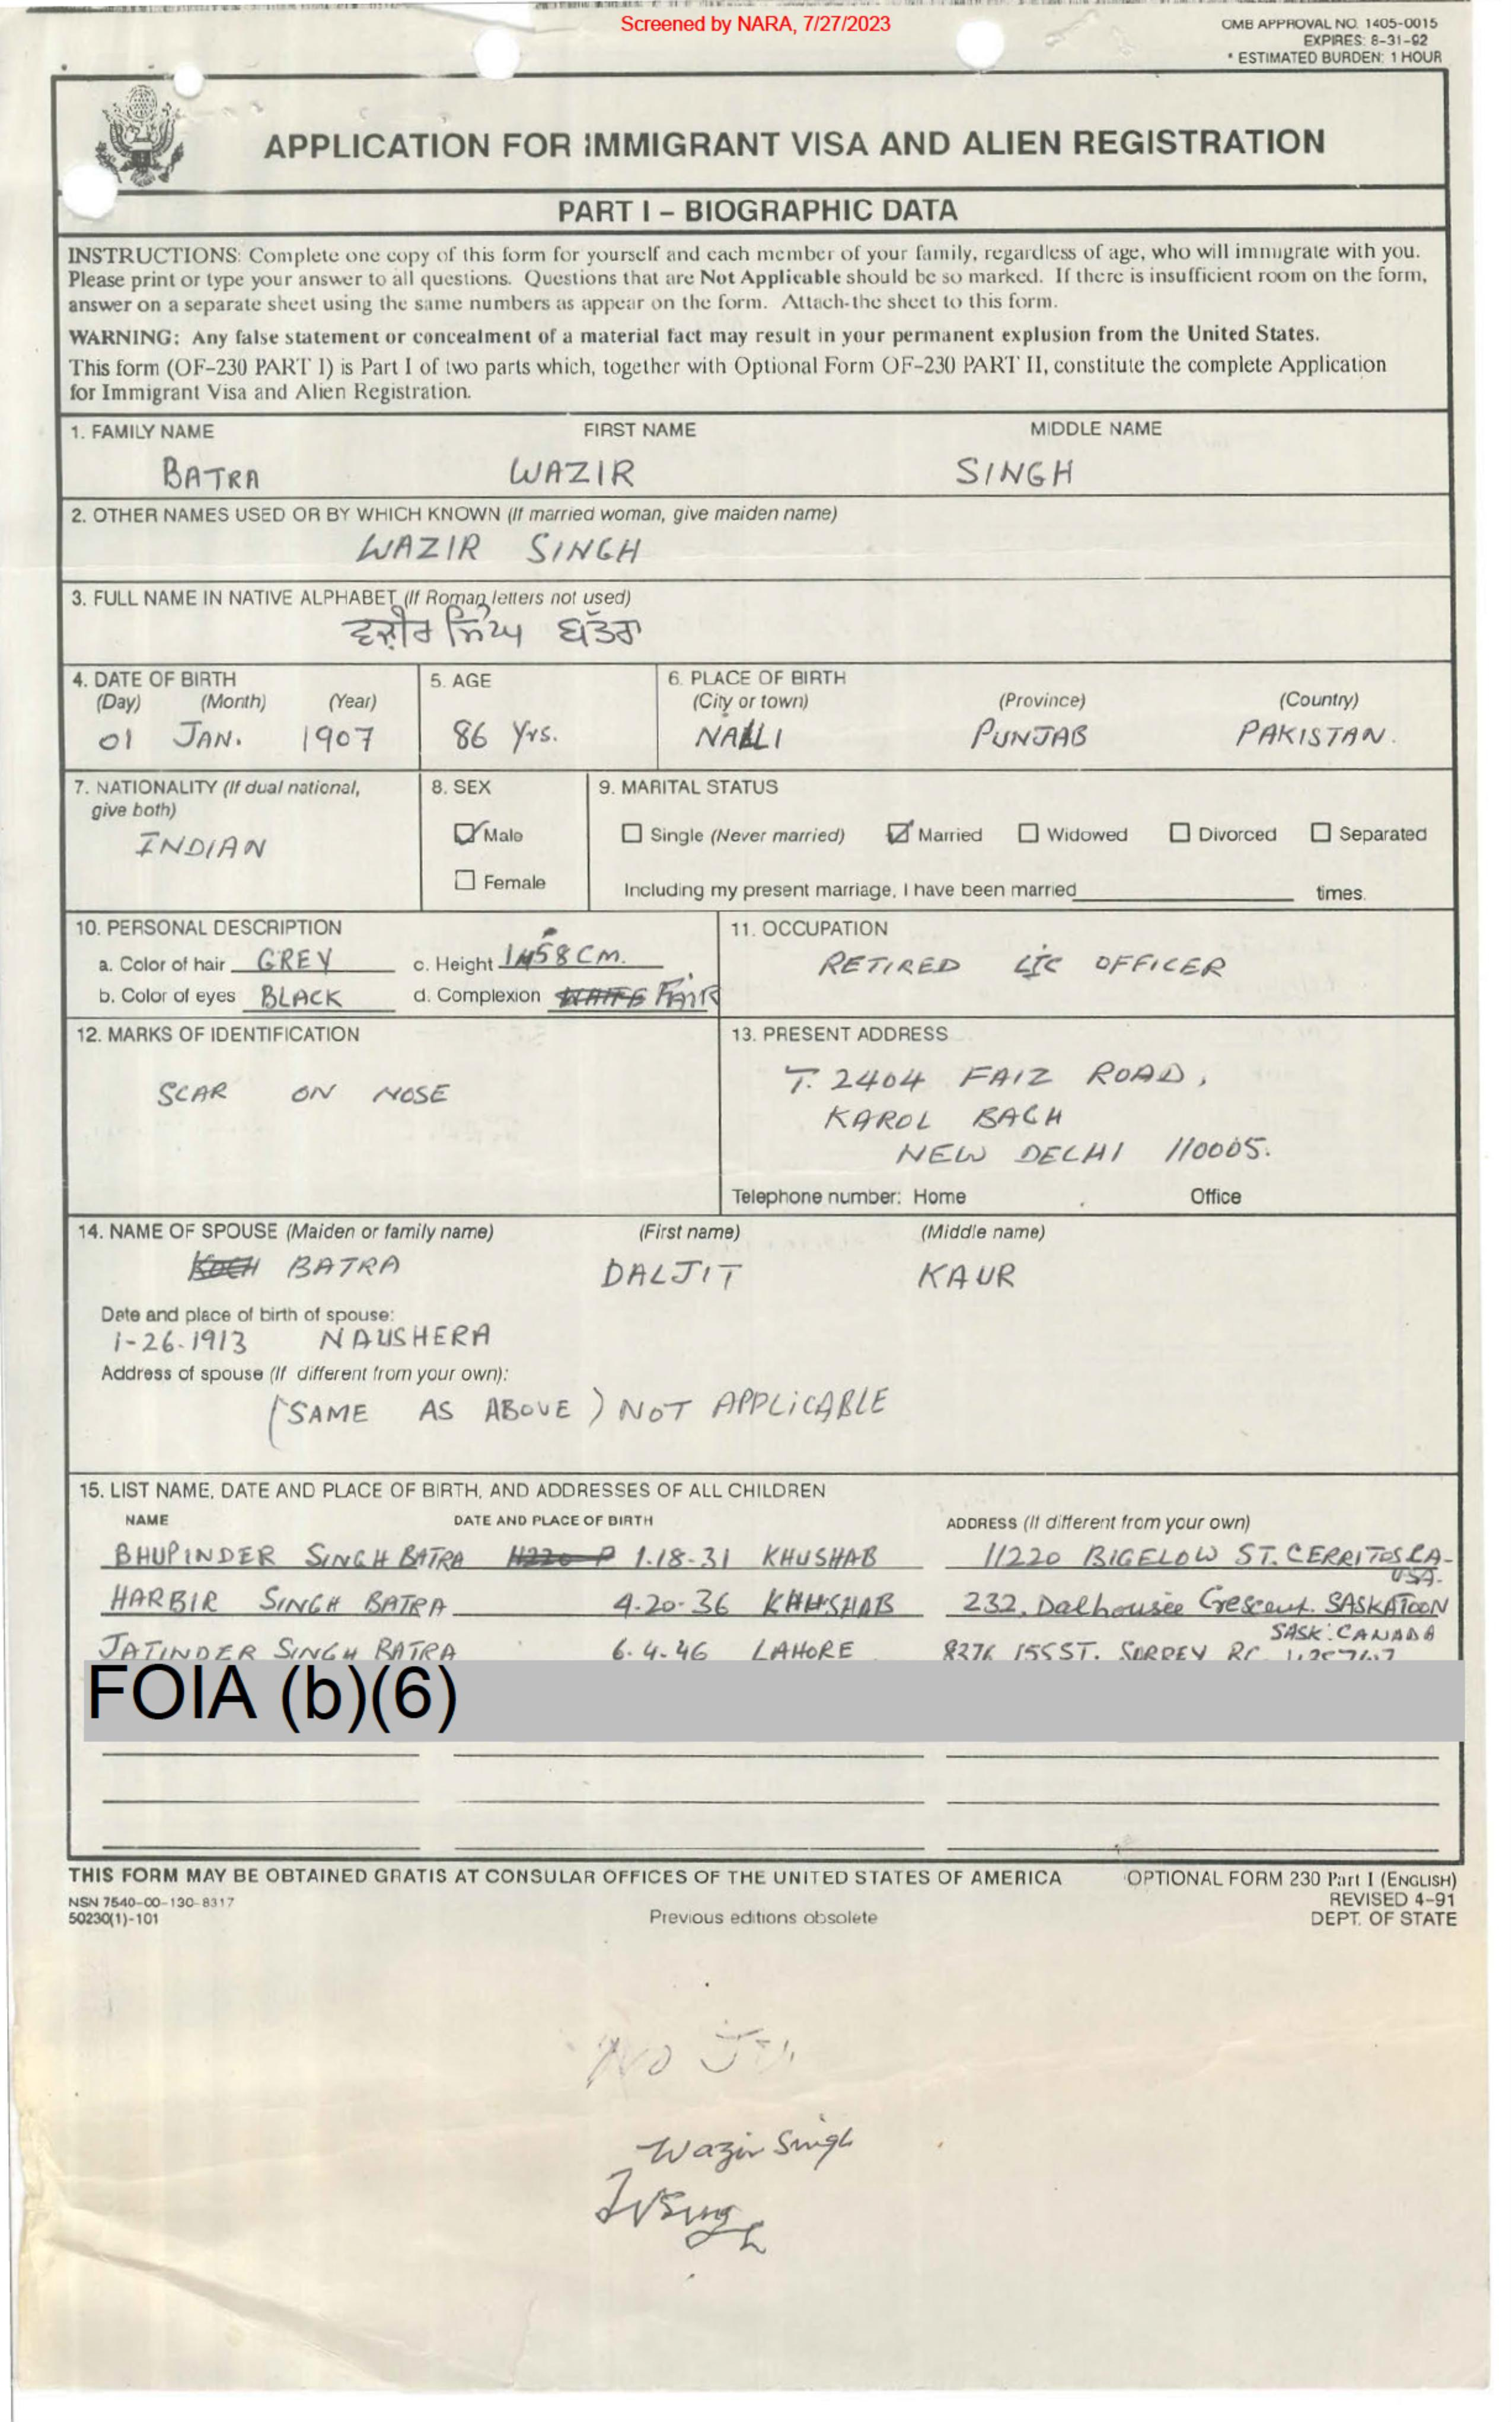 Screened by NARA, 7/27/2023
OMB APPROVAL NO. 1405-0015
EXPIRES: 8-31-92
* ESTIMATED BURDEN: 1 HOUR
APPLICATION FOR IMMIGRANT VISA AND ALIEN REGISTRATION
PART I – BIOGRAPHIC DATA
INSTRUCTIONS: Complete one copy of this form for yourself and each member of your family, regardless of age, who will immigrate with you.
Please print or type your answer to all questions. Questions that are Not Applicable should be so marked. If there is insufficient room on the form,
answer on a separate sheet using the same numbers as appear on the form. Attach-the sheet to this form.
WARNING: Any false statement or concealment of a material fact may result in your permanent explusion from the United States.
This form (OF-230 PART I) is Part I of two parts which, together with Optional Form OF-230 PART II, constitute the complete Application
for Immigrant Visa and Alien Registration.
1. FAMILY NAME FIRST NAME MIDDLE NAME
BATRA WAZIR SINGH
2. OTHER NAMES USED OR BY WHICH KNOWN (If married woman, give maiden name)
WAZIR SINGH
3. FULL NAME IN NATIVE ALPHABET (If Roman letters not used)
ਵਜ਼ੀਰ ਸਿੰਘ ਬੱਤਰਾ
4. DATE OF BIRTH 5. AGE 6. PLACE OF BIRTH
(Day) (Month) (Year) (City or town) (Province) (Country)
01 JAN. 1907 86 Yrs. NALLI PUNJAB PAKISTAN.
7. NATIONALITY (If dual national, 8. SEX 9. MARITAL STATUS
give both)
INDIAN Male Single (Never married) Married Widowed Divorced Separated
Female Including my present marriage, I have been married times.
10. PERSONAL DESCRIPTION 11. OCCUPATION
a. Color of hair GREY c. Height 158 CM. RETIRED LIC OFFICER
b. Color of eyes BLACK d. Complexion WHITE FAIR
12. MARKS OF IDENTIFICATION 13. PRESENT ADDRESS
SCAR ON NOSE T. 2404 FAIZ ROAD,
KAROL BAGH
NEW DELHI 110005.
Telephone number: Home Office
14. NAME OF SPOUSE (Maiden or family name) (First name) (Middle name)
BATRA DALJIT KAUR
Date and place of birth of spouse:
1-26-1913 NAUSHERA
Address of spouse (If different from your own):
(SAME AS ABOVE) NOT APPLICABLE
15. LIST NAME, DATE AND PLACE OF BIRTH, AND ADDRESSES OF ALL CHILDREN
NAME DATE AND PLACE OF BIRTH ADDRESS (If different from your own)
BHUPINDER SINGH BATRA 11220 P 1-18-31 KHUSHAB 11220 BIGELOW ST. CERRITOS CA-
USA.
HARBIR SINGH BATRA 4-20-36 KHUSHAB 232, Dalhousie Crescent. SASKATOON
SASK. CANADA
JATINDER SINGH BATRA 6-4-46 LAHORE 8276 155 ST. SURREY BC
FOIA (b)(6)
THIS FORM MAY BE OBTAINED GRATIS AT CONSULAR OFFICES OF THE UNITED STATES OF AMERICA OPTIONAL FORM 230 Part I (ENGLISH)
NSN 7540-00-130-8317 REVISED 4-91
50230(1)-101 Previous editions obsolete DEPT. OF STATE
NO
Wazir Singh
WSingh